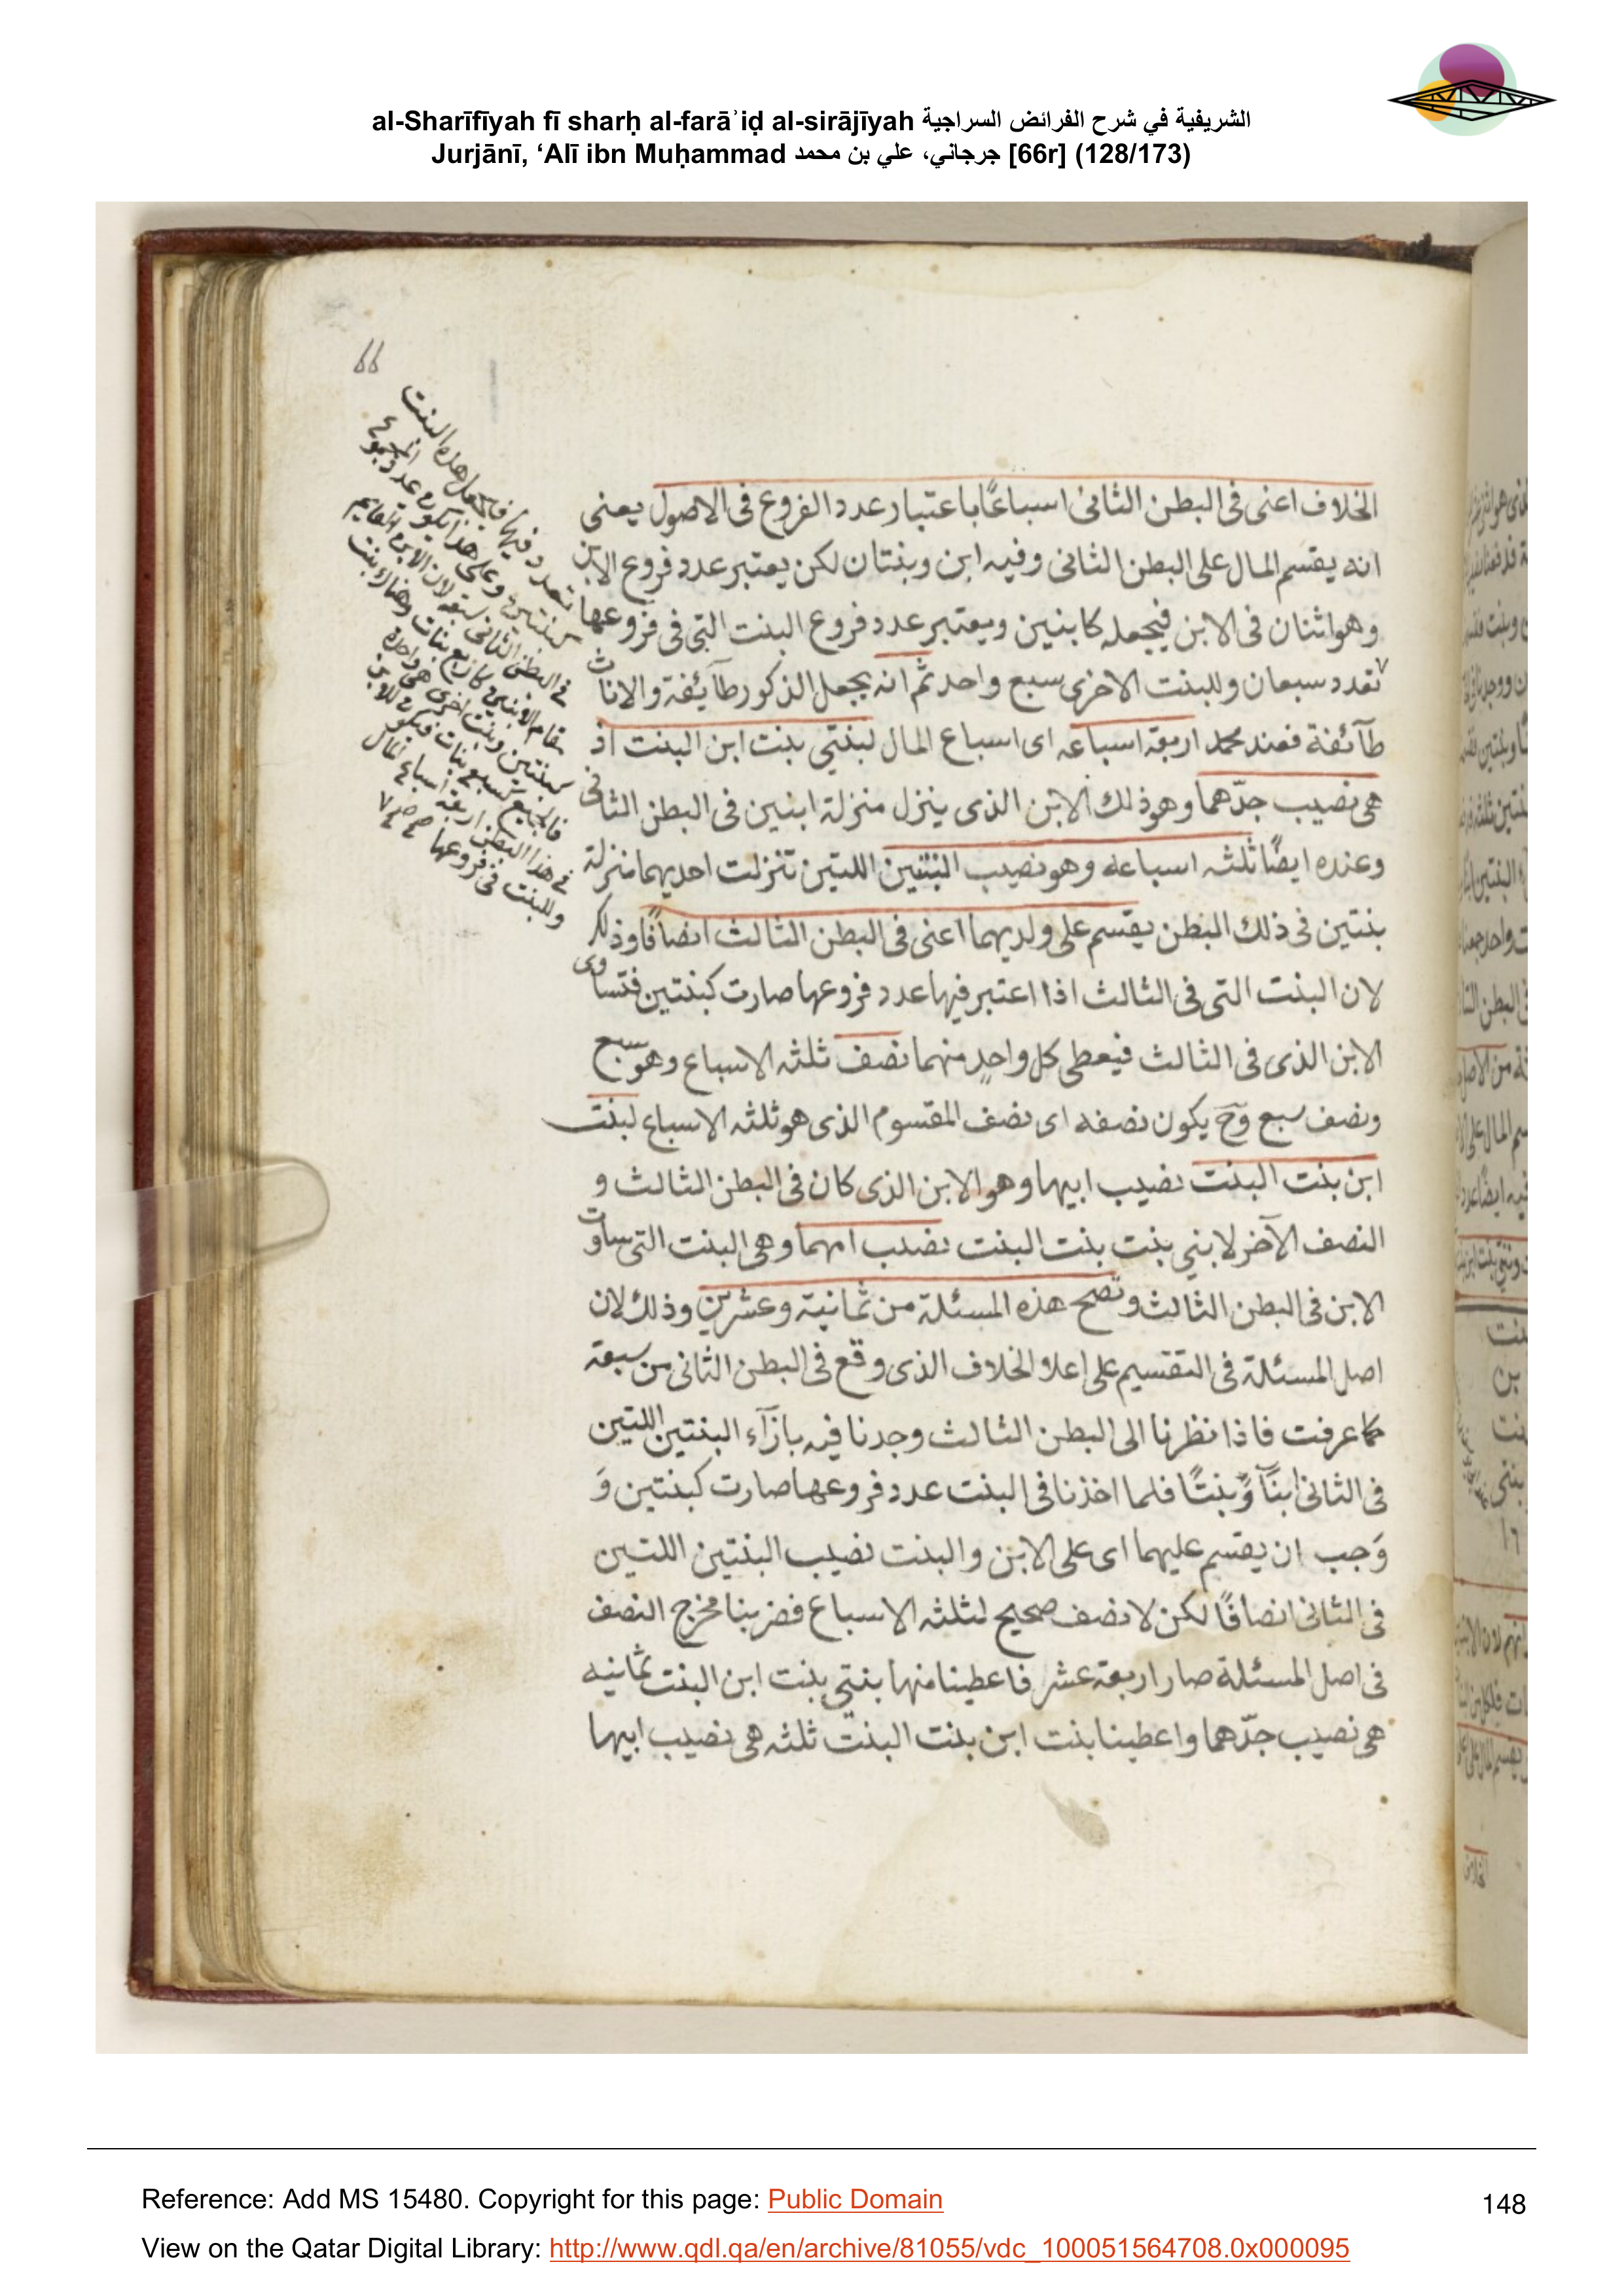 al-Sharīfīyah fī sharḥ al-farāʾiḍ al-sirājīyah الشريفية في شرح الفرائض السراجية
Jurjānī, ʻAlī ibn Muḥammad جرجاني، علي بن محمد [66r] (128/173)
66
الخلاف اعنى فى البطن الثانى اسباعًا باعتبار عدد الفروع فى الاصول يعنى
انه يقسم المال على البطن الثانى وفيه ابن وبنتان لكن يعتبر عدد فروع الابن
وهو اثنان فى الابن فيجعله كابنين ويعتبر عدد فروع البنت التى فى فروعها
تعدد سبعان وللبنت الاخرى سبع واحد ثم انه يجعل الذكور طآئفة والاناث
طآئفة فعند محمد اربعة اسباعه اى اسباع المال لبنتي بنت ابن البنت اذ
هى نصيب جدّهما وهو ذلك الابن الذى ينزل منزلة ابنين فى البطن الثانى
وعنده ايضًا ثلثه اسباعه وهو نصيب البنتين اللتين تنزلت احديهما منزلة
بنتين فى ذلك البطن يقسم على ولديهما اعنى فى البطن الثالث انصافًا وذلك
لان البنت التى فى الثالث اذا اعتبر فيها عدد فروعها صارت كبنتين فتساوى
الابن الذى فى الثالث فيعطى كل واحدٍ منهما نصف ثلثه الاسباع وهو سبع
ونصف سبع وح يكون نصفه اى نصف المقسوم الذى هو ثلثه الاسباع لبنت
ابن بنت البنت نصيب ابيها وهو الابن الذى كان فى البطن الثالث و
النصف الآخر لابني بنت بنت البنت نصيب امهما وهى البنت التى ساوت
الابن فى البطن الثالث وتصح هذه المسئلة من ثمانية وعشرين وذلك لان
اصل المسئلة فى التقسيم على اعلا الخلاف الذى وقع فى البطن الثانى من سبعة
كما عرفت فاذا نظرنا الى البطن الثالث وجدنا فيه بازآء البنتين اللتين
فى الثانى ابنًا وبنتًا فلما اخذنا فى البنت عدد فروعها صارت كبنتين وَ
وَجب ان يقسم عليهما اى على الابن والبنت نصيب البنتين اللتين
فى الثانى انصافًا لكن لا نصف صحيح لثلثه الاسباع فضربنا مخرج النصف
فى اصل المسئلة صار اربعة عشر فاعطينا منها بنتي بنت ابن البنت ثمانيه
هى نصيب جدّهما واعطينا بنت ابن بنت البنت ثلثه هى نصيب ابيها
تعدد فيها فيجعل هذه البنت
كبنتين وعلى هذا يكون عدد المجموع
فى البطن الثانى سبعة لان الابن القائم
مقام الابنين كاربع بنات وهناك بنت
كبنتين وبنت اخرى هى واحدة
فالجميع كسبع بنات فيكون للابن
فى هذا البطن اربعة اسباع المال
وللبنت فى فروعها
Reference: Add MS 15480. Copyright for this page: Public Domain
View on the Qatar Digital Library: http://www.qdl.qa/en/archive/81055/vdc_100051564708.0x000095
148